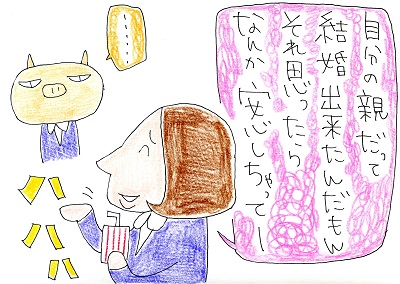 自分の親だって
結婚出来たんだもん
それ思ったら
なんか安心しちゃってー
……
ハハハ